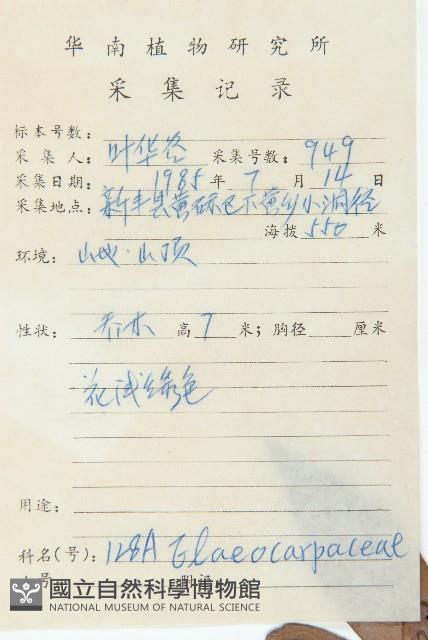 华南植物研究所
采集记录
标本号数：
采集人：叶华谷 采集号数：949
采集日期：1985年7月14日
采集地点：新丰县黄磜区下黄乡小洞径
海拔550米
环境：山地·山顶
性状：乔木 高7米；胸径 厘米
花浅绿色
用途：
科名(号)：128A Elaeocarpaceae
國立自然科學博物館
NATIONAL MUSEUM OF NATURAL SCIENCE